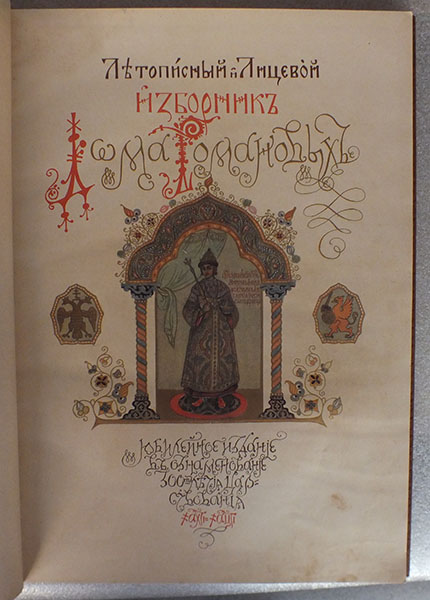 Лѣтописный и Лицевой
Изборникъ
Дома Романовыхъ
Юбилейное изданіе
въ ознаменованіе
300 лѣтія цар-
ствованія